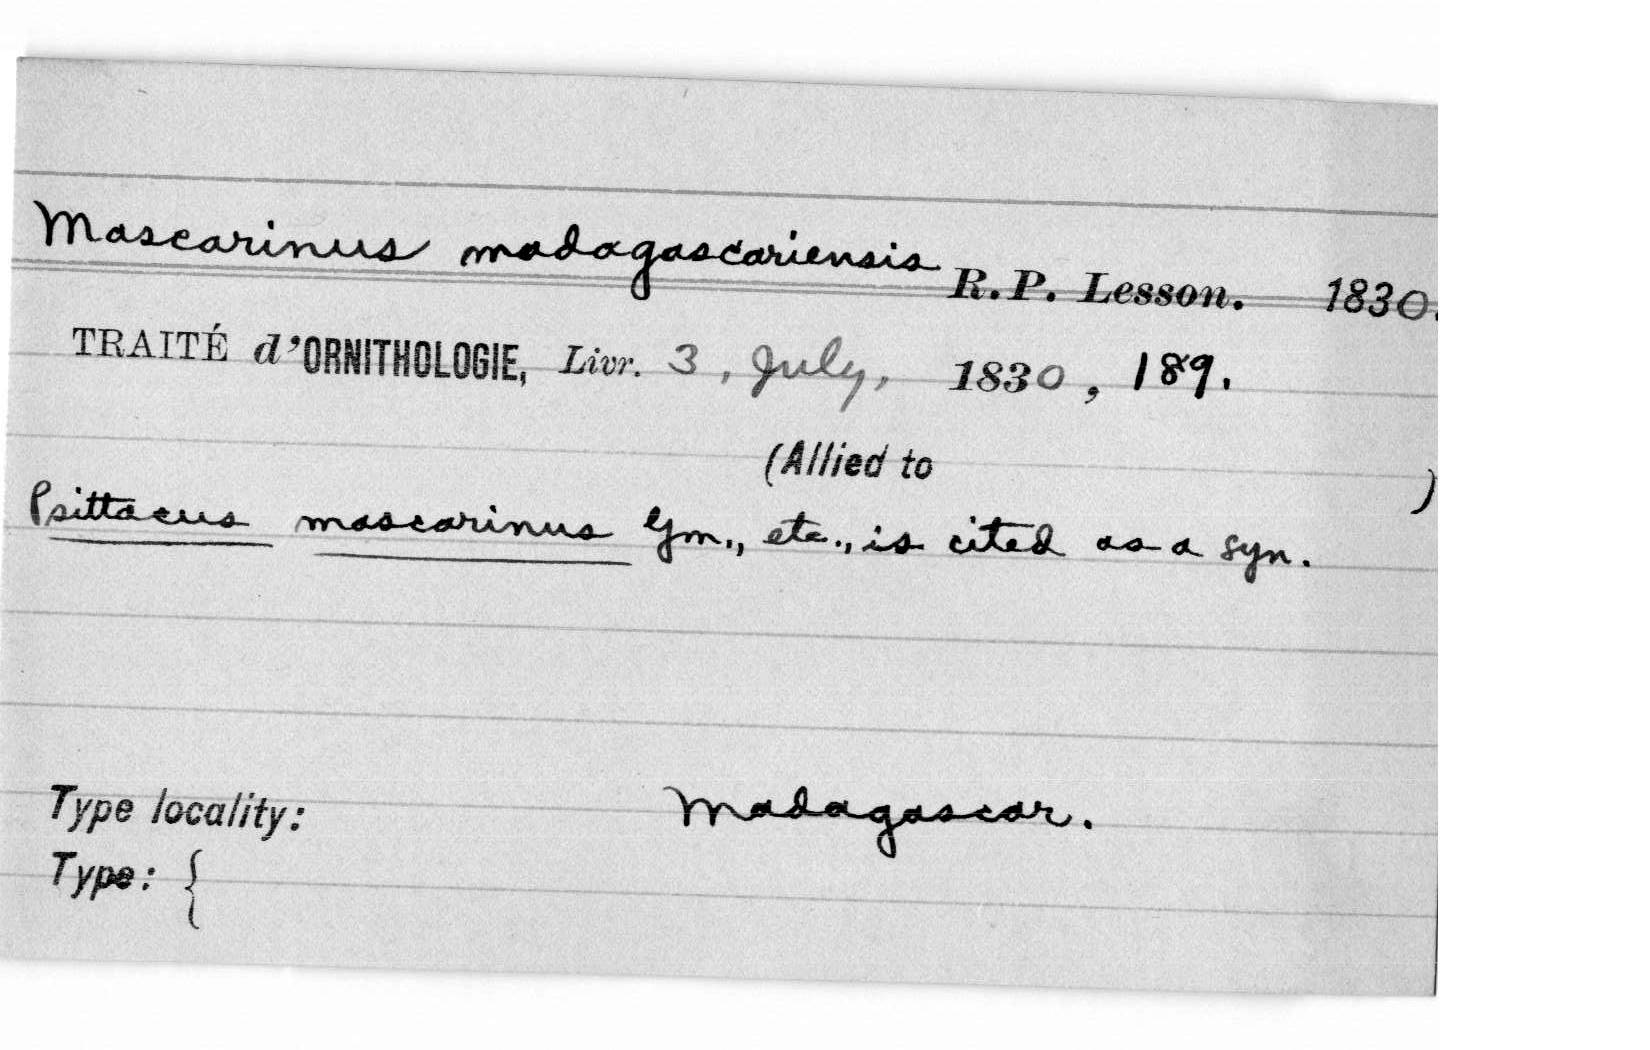 Mascarinus madagascariensis R.P. Lesson. 1830.
TRAITÉ d'ORNITHOLOGIE, Livr. 3, July, 1830, 189.
(Allied to )
Psittacus mascarinus Gm., etc., is cited as a syn.
Type locality: Madagascar.
Type: {